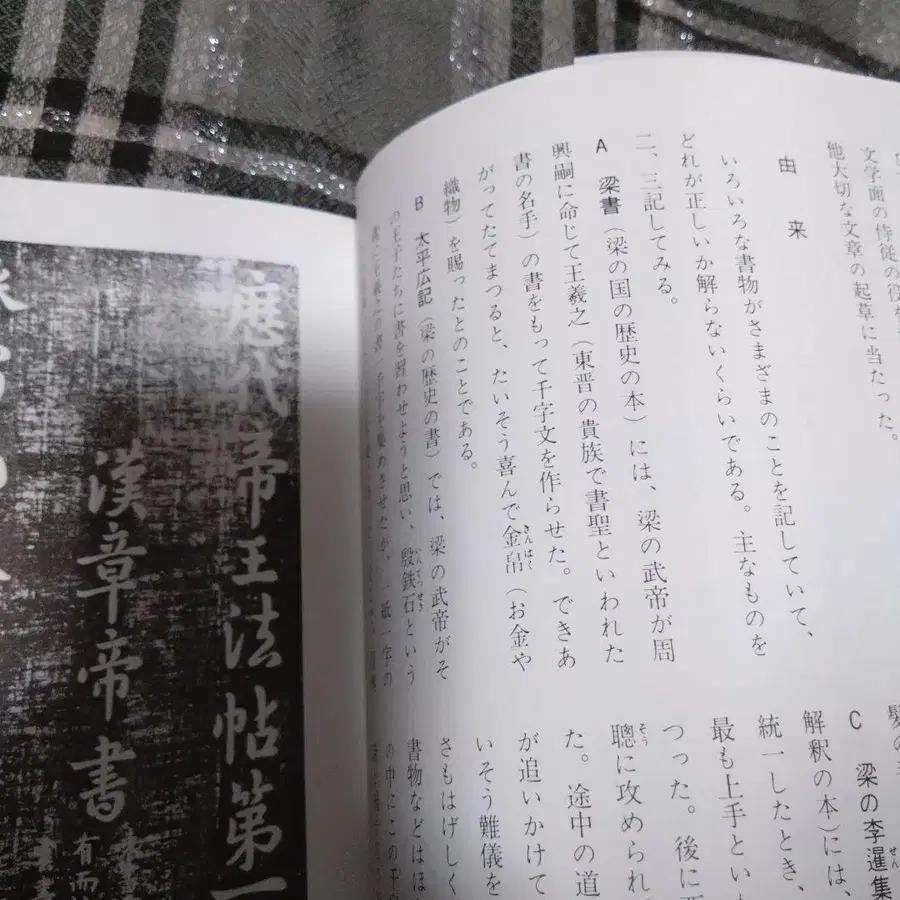 文学面の侍従の役を
他大切な文章の起草に当たった。
由来
いろいろな書物がさまざまのことを記していて、
どれが正しいか解らないくらいである。主なものを
二、三記してみる。
A 梁書(梁の国の歴史の本)には、梁の武帝が周
興嗣に命じて王羲之(東晋の貴族で書聖といわれた
書の名手)の書をもって千字文を作らせた。できあ
がってたてまつると、たいそう喜んで金帛(お金や
きんはく
織物)を賜ったとのことである。
B 太平広記(梁の歴史の書)では、梁の武帝がそ
の王子たちに書を習わせようと思い、殷鉄石という
いんてっせき
千字を集めさせたが、一紙一字の
C 梁の李暹集
せん
解釈の本)には、
統一したとき、
最も上手とい
つった。後に
聰に攻められ
そう
た。途中の道
が追いかけて
いそう難儀を
さもはげしく
書物などはほ
の中にこの千
歷代帝王法帖第一
漢章帝書